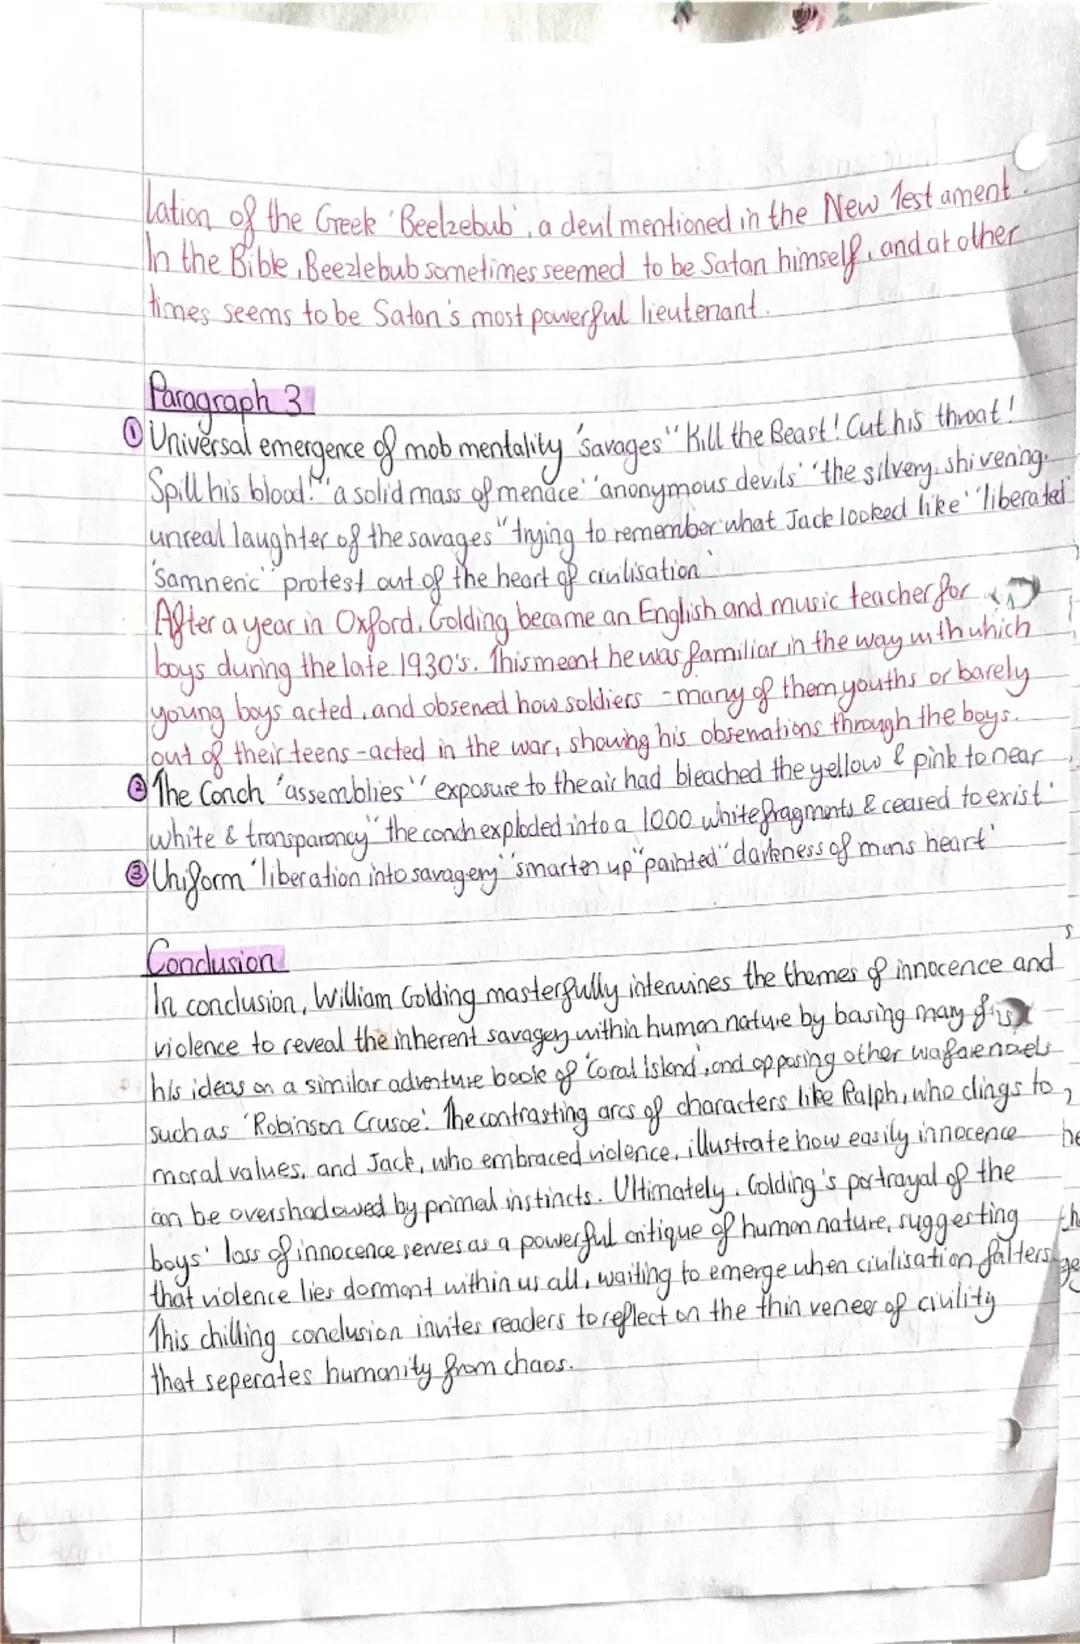 lation of the Greek 'Beelzebub', a devil mentioned in the New Testament.
In the Bible, Beezlebub sometimes seemed to be Satan himself, and at other
times seems to be Satan's most powerful lieutenant.
Paragraph 3
① Universal emergence of mob mentality 'savages' 'Kill the Beast! Cut his throat!
Spill his blood!' 'a solid mass of menace' 'anonymous devils' 'the silvery, shivering,
unreal laughter of the savages' 'trying to remember what Jack looked like' 'liberated'
'Samneric' 'protest out of the heart of civilisation'
After a year in Oxford, Golding became an English and music teacher for
boys during the late 1930's. This meant he was familiar in the way with which
young boys acted, and observed how soldiers - many of them youths or barely
out of their teens - acted in the war, showing his observations through the boys.
② The Conch 'assemblies' 'exposure to the air had bleached the yellow & pink to near
white & transparancy' 'the conch exploded into a 1000 white fragments & ceased to exist'
③ Uniform 'liberation into savagery' 'smarten up' 'painted' 'darkness of mans heart'
Conclusion
In conclusion, William Golding masterfully interwines the themes of innocence and
violence to reveal the inherent savagery within human nature by basing many of
his ideas on a similar adventure book of 'Coral Island', and opposing other
such as 'Robinson Crusoe'. The contrasting arcs of characters like Ralph, who clings to
moral values, and Jack, who embraced violence, illustrate how easily innocence
can be overshadowed by primal instincts. Ultimately, Golding's portrayal of the
boys' loss of innocence serves as a powerful critique of human nature, suggesting
that violence lies dormant within us all, waiting to emerge when civilisation falters.
This chilling conclusion invites readers to reflect on the thin veneer of civility
that seperates humanity from chaos.